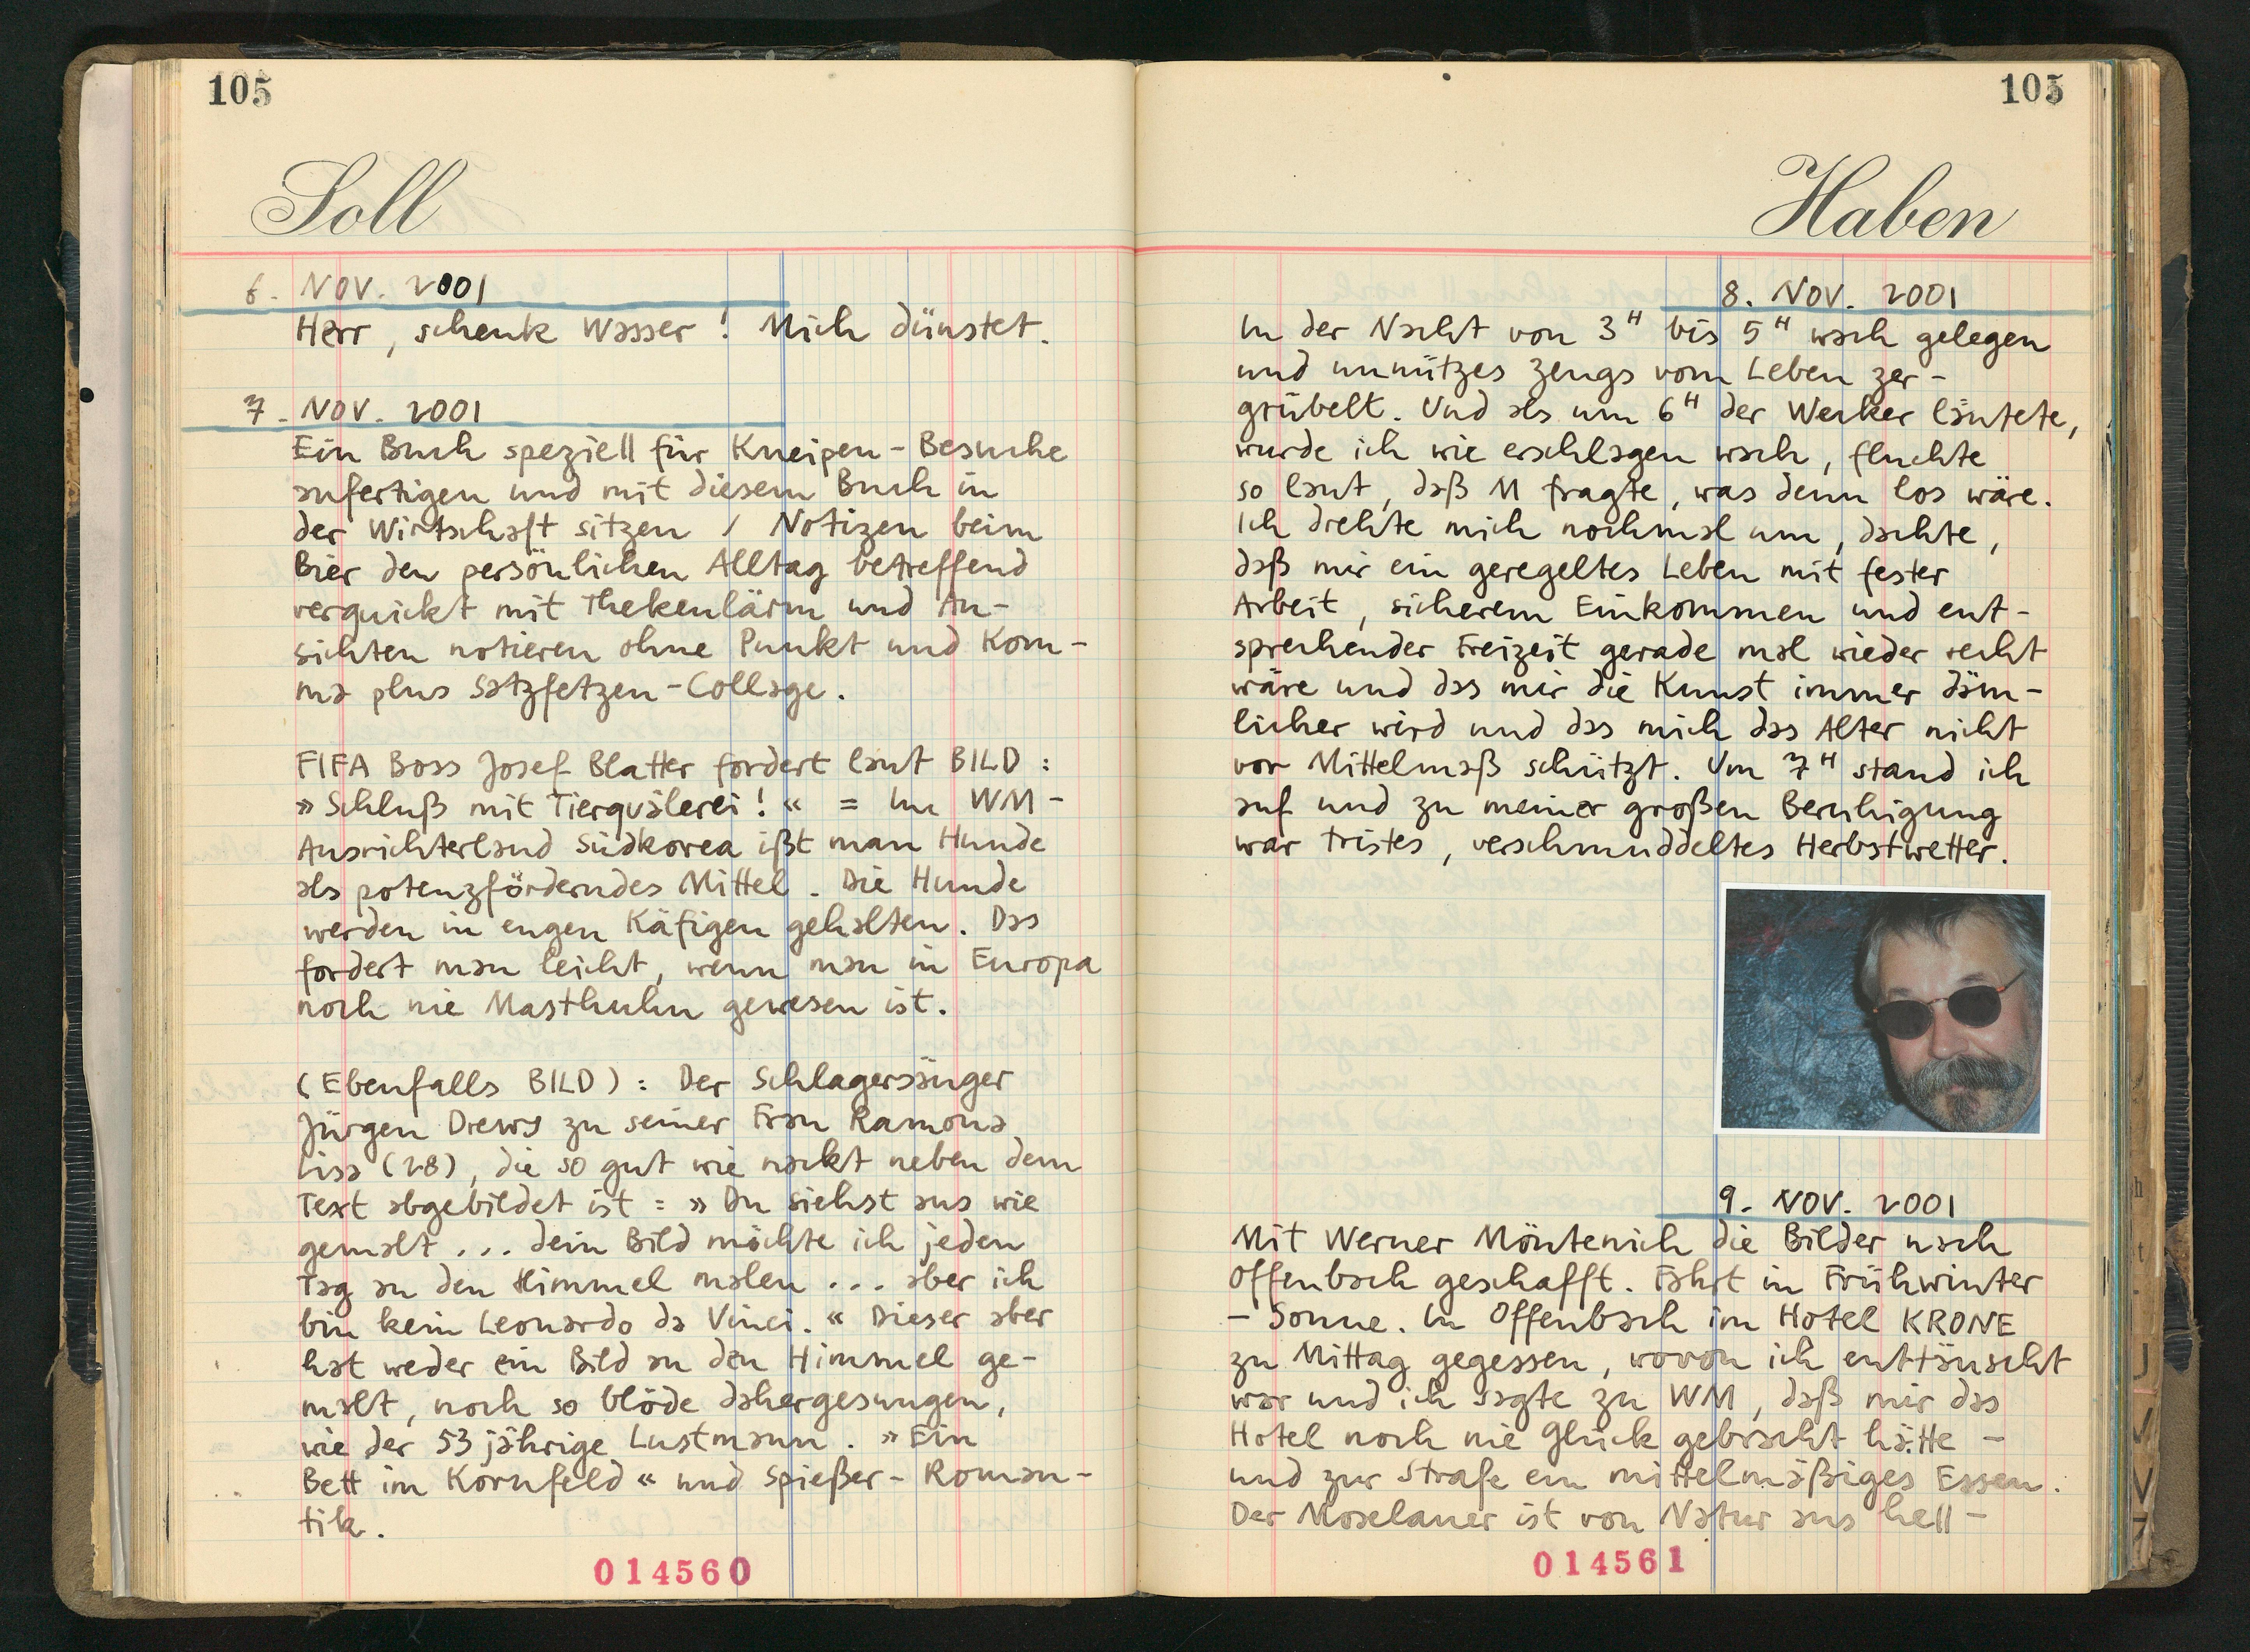 105
Soll
6. NOV. 2001
Herr, schenk Wasser! Mich dünstet.
7. NOV. 2001
Ein Buch speziell für Kneipen-Besuche
anfertigen und mit diesem Buch in
der Wirtschaft sitzen / Notizen beim
Bier den persönlichen Alltag betreffend
verquickt mit Thekenlärm und An-
sichten notieren ohne Punkt und Kom-
ma plus Satzfetzen-Collage.
FIFA Boss Josef Blatter fordert laut BILD:
»Schluß mit Tierquälerei!« = Im WM-
Ausrichterland Südkorea ißt man Hunde
als potenzförderndes Mittel. Die Hunde
werden in engen Käfigen gehalten. Das
fordert man leicht, wenn man in Europa
noch nie Masthuhn gewesen ist.
(Ebenfalls BILD): Der Schlagersänger
Jürgen Drews zu seiner Frau Ramona
Lisa (28), die so gut wie nackt neben dem
Text abgebildet ist: »Du siehst aus wie
gemalt ... dein Bild möchte ich jeden
Tag an den Himmel malen ... aber ich
bin kein Leonardo da Vinci.« Dieser aber
hat weder ein Bild an den Himmel ge-
malt, noch so blöde dahergesungen,
wie der 53 jährige Lustmann. »Ein
Bett im Kornfeld« und Spießer-Roman-
tik.
014560
105
Haben
8. NOV. 2001
In der Nacht von 3H bis 5H wach gelegen
und unnützes Zeugs vom Leben zer-
grübelt. Und als um 6H der Wecker läutete,
wurde ich wie erschlagen wach, fluchte
so laut, daß M fragte, was denn los wäre.
Ich drehte mich nochmal um, dachte,
daß mir ein geregeltes Leben mit fester
Arbeit, sicherem Einkommen und ent-
sprechender Freizeit gerade mal wieder recht
wäre und das mir die Kunst immer däm-
licher wird und das mich das Alter nicht
vor Mittelmaß schützt. Um 7H stand ich
auf und zu meiner großen Beruhigung
war tristes, verschmuddeltes Herbstwetter.
9. NOV. 2001
Mit Werner Möntenich die Bilder nach
Offenbach geschafft. Fahrt in Frühwinter
- Sonne. In Offenbach im Hotel KRONE
zu Mittag gegessen, wovon ich enttäuscht
war und ich sagte zu WM, daß mir das
Hotel noch nie Glück gebracht hätte -
und zur Strafe ein mittelmäßiges Essen.
Der Moselaner ist von Natur aus hell-
014561